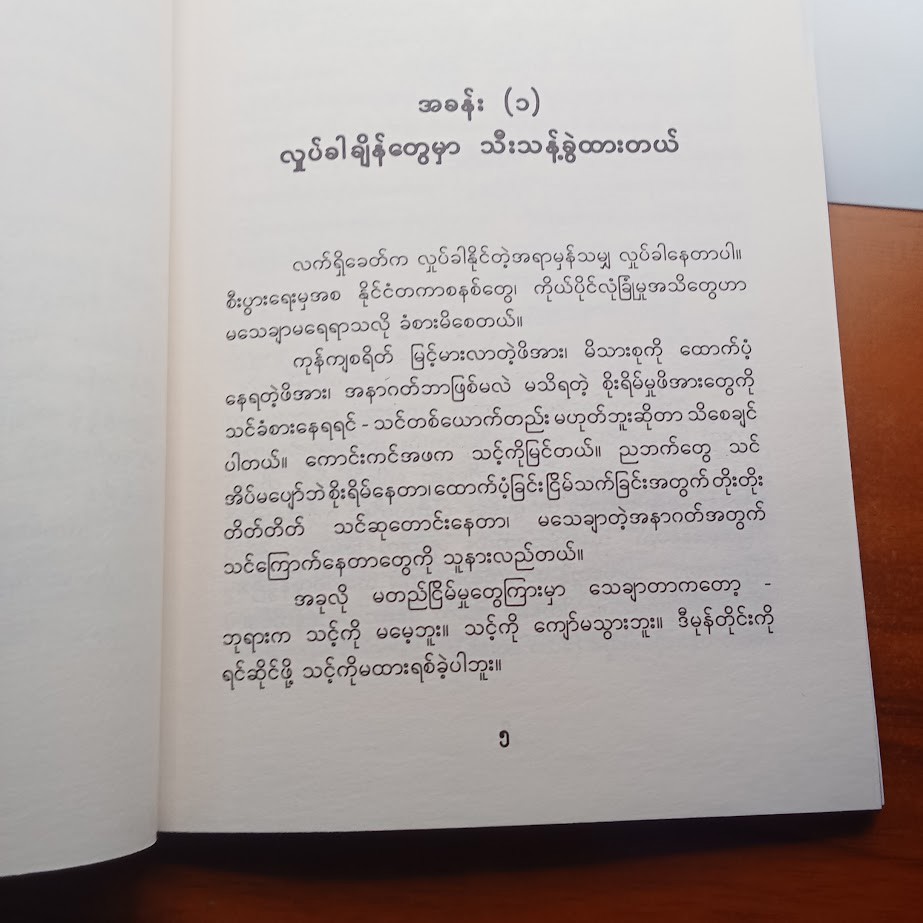 အခန်း (၁)
လှုပ်ခါချိန်တွေမှာ သီးသန့်ခွဲထားတယ်
လက်ရှိခေတ်က လှုပ်ခါနိုင်တဲ့အရာမှန်သမျှ လှုပ်ခါနေတာပါ။
စီးပွားရေးမှအစ နိုင်ငံတကာစနစ်တွေ၊ ကိုယ်ပိုင်လုံခြုံမှုအသိတွေဟာ
မသေချာမရေရာသလို ခံစားမိစေတယ်။
ကုန်ကျစရိတ် မြင့်မားလာတဲ့ဖိအား၊ မိသားစုကို ထောက်ပံ့
နေရတဲ့ဖိအား၊ အနာဂတ်ဘာဖြစ်မလဲ မသိရတဲ့ စိုးရိမ်မှုဖိအားတွေကို
သင်ခံစားနေရရင် - သင်တစ်ယောက်တည်း မဟုတ်ဘူးဆိုတာ သိစေချင်
ပါတယ်။ ကောင်းကင်အဖက သင့်ကိုမြင်တယ်။ ညဘက်တွေ သင်
အိပ်မပျော်ဘဲ စိုးရိမ်နေတာ၊ ထောက်ပံ့ခြင်းငြိမ်သက်ခြင်းအတွက် တိုးတိုး
တိတ်တိတ် သင်ဆုတောင်းနေတာ၊ မသေချာတဲ့အနာဂတ်အတွက်
သင်ကြောက်နေတာတွေကို သူနားလည်တယ်။
အခုလို မတည်ငြိမ်မှုတွေကြားမှာ သေချာတာကတော့ -
ဘုရားက သင့်ကို မမေ့ဘူး။ သင့်ကို ကျော်မသွားဘူး။ ဒီမုန်တိုင်းကို
ရင်ဆိုင်ဖို့ သင့်ကိုမထားရစ်ခဲ့ပါဘူး။
၅